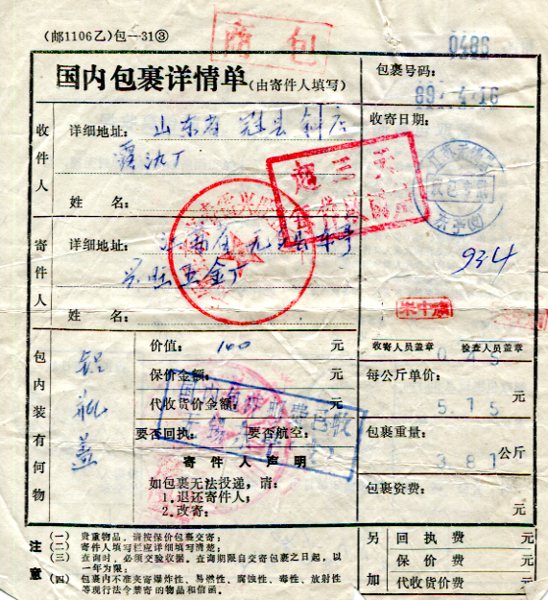 (邮1106乙)包—31③
商包
0486
国内包裹详情单(由寄件人填写)
包裹号码:
89.4.16
收件人
详细地址: 山东省 冠县
收寄日期:
姓名:
超三天
寄件人
详细地址:
五金厂
934
姓名:
包内装有何物
铝瓶盖
价值: 100 元
收寄人员盖章
检查人员盖章
保价金额: 元
每公斤单价:
代收货价金额: 元
515
国内包裹
已收
无锡
要否回执:
要否航空:
包裹重量:
381 公斤
寄件人声明
如包裹无法投递,请:
1.退还寄件人;
2.改寄:
包裹资费: 元
注意
(一) 贵重物品,请按保价包裹交寄;
(二) 寄件人填写栏应详细填写清楚;
(三) 查询时,必须交验收据。查询期限自交寄包裹之日起,以
一年为限;
(四) 包裹内不准夹寄爆炸性、易燃性、腐蚀性、毒性、放射性
等现行法令禁寄的物品和信函。
另加
回执费 元
保价费 元
代收货价费 元